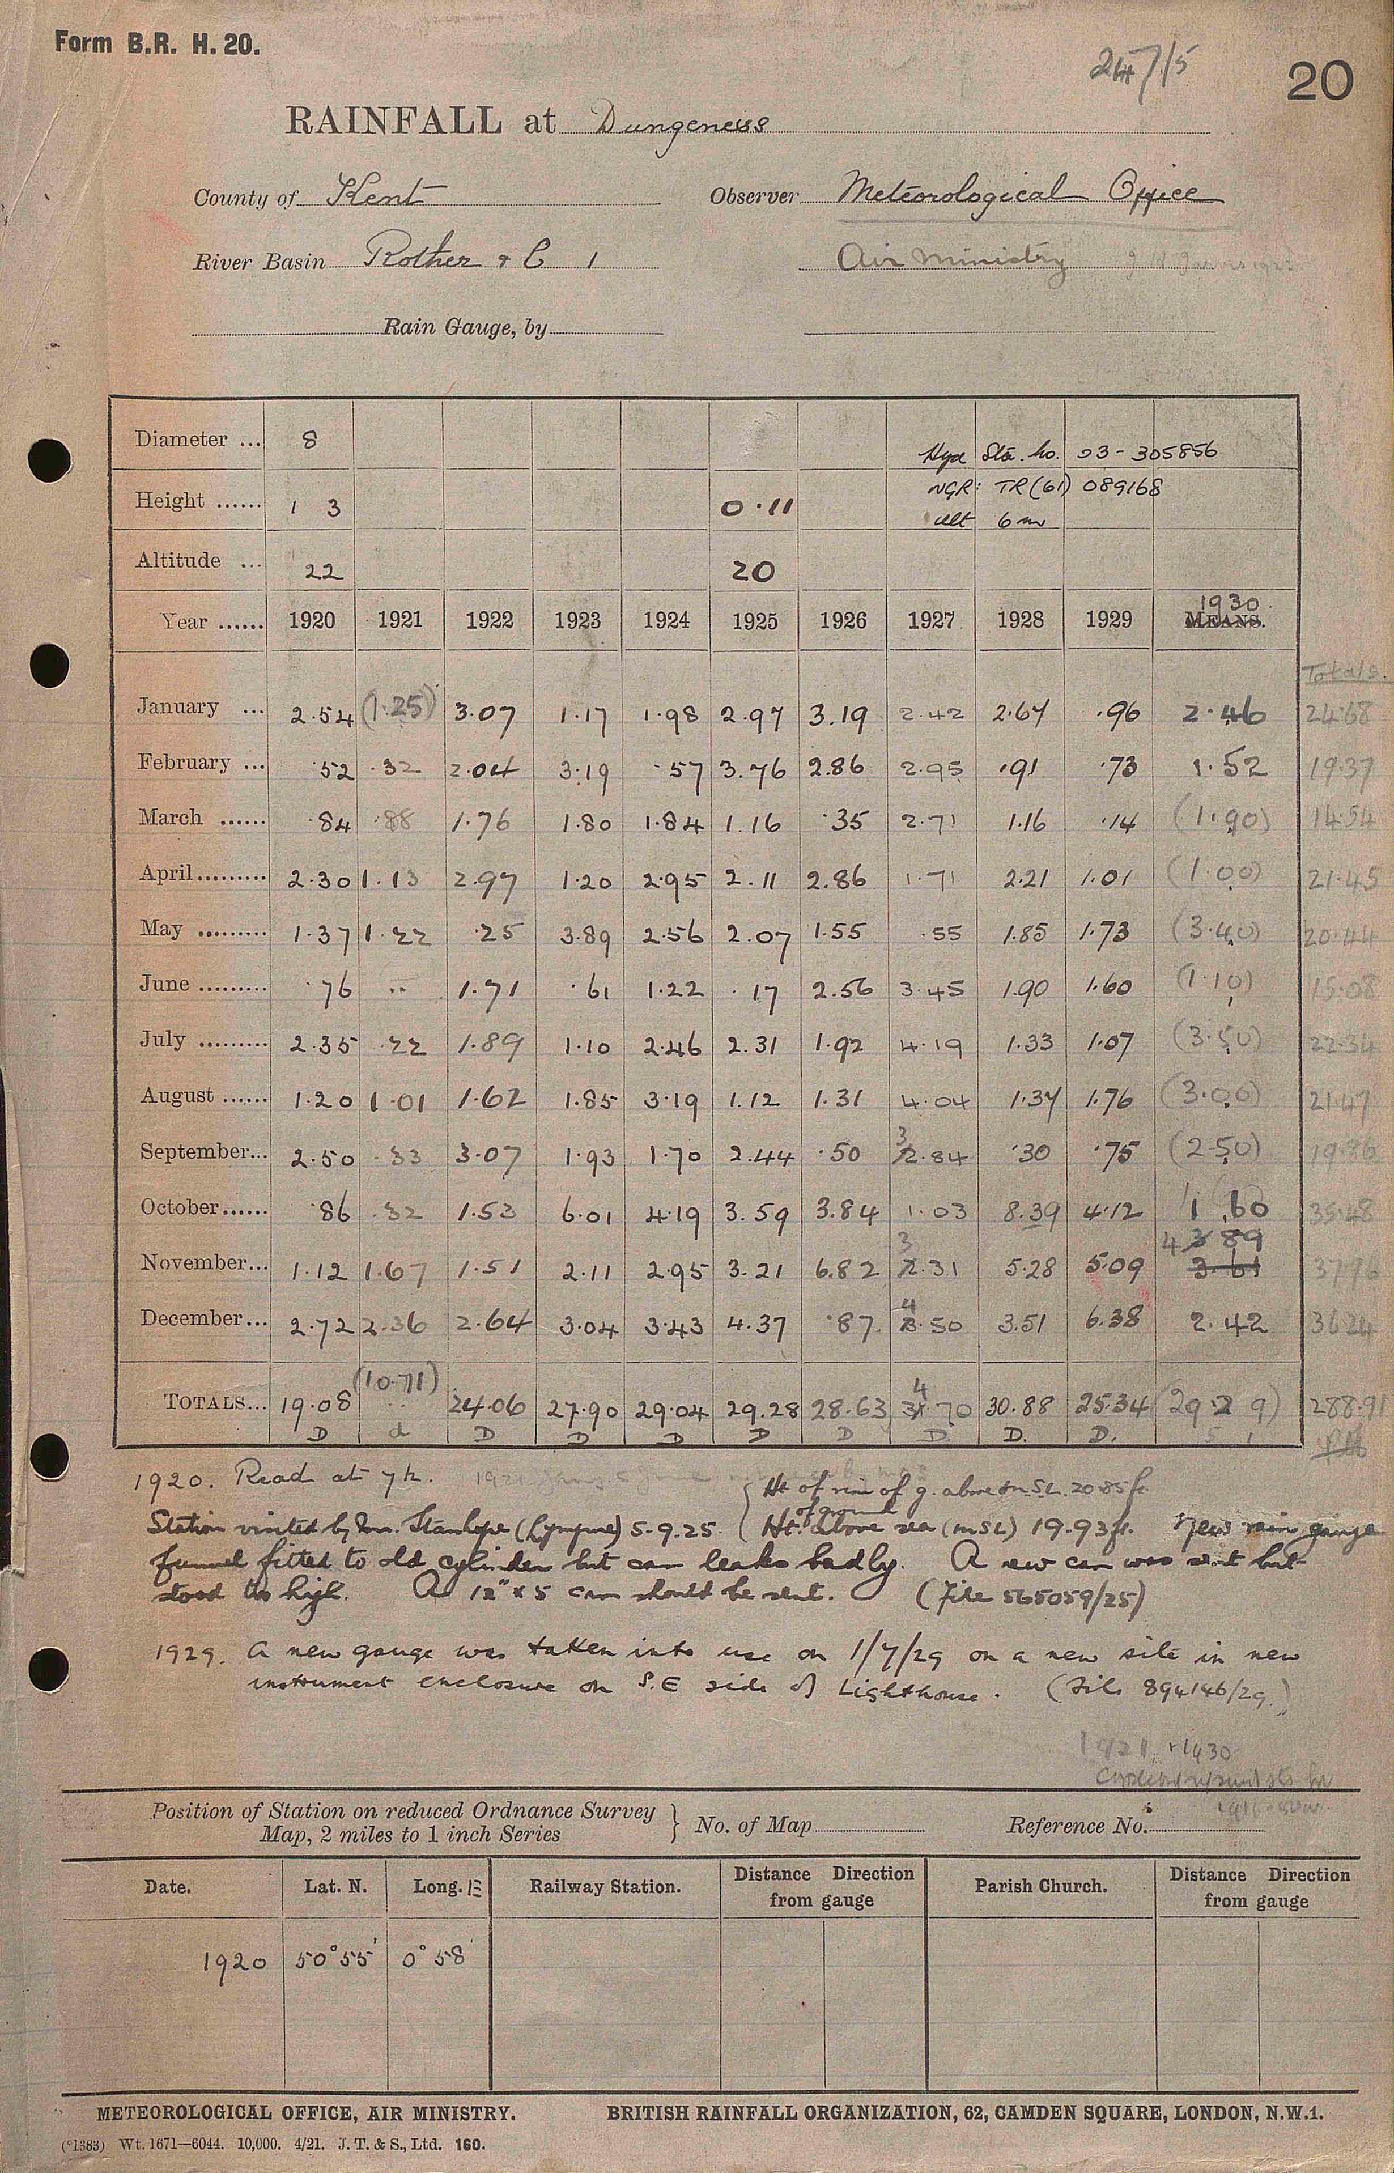 Form B.R. H. 20.
247/5
20
RAINFALL at Dungeness
County of Kent Observer Meteorological Office
River Basin Rother & C 1 Air Ministry
Rain Gauge, by
Diameter ... 8 Hyd Sta. no. 03-305856
Height ...... 1 3 0.11 NGR: TR (61) 089168
alt 6m
Altitude ... 22 20
1930
Year ...... 1920 1921 1922 1923 1924 1925 1926 1927 1928 1929 MEANS.
Totals.
January ... 2.54 (1.25) 3.07 1.17 1.98 2.97 3.19 2.42 2.67 .96 2.46 24.68
February ... .52 .32 2.04 3.19 .57 3.76 2.86 2.95 .91 .73 1.52 19.37
March ...... .84 .88 1.76 1.80 1.84 1.16 .35 2.71 1.16 .14 (1.90) 14.54
April ......... 2.30 1.13 2.97 1.20 2.95 2.11 2.86 1.71 2.21 1.01 (1.00) 21.45
May ......... 1.37 1.22 .25 3.89 2.56 2.07 1.55 .55 1.85 1.73 (3.40) 20.44
June ......... .76 .. 1.71 .61 1.22 .17 2.56 3.45 1.90 1.60 (1.10) 15.08
July ......... 2.35 .22 1.89 1.10 2.46 2.31 1.92 4.19 1.33 1.07 (3.50) 22.34
August ...... 1.20 1.01 1.62 1.85 3.19 1.12 1.31 4.04 1.37 1.76 (3.00) 21.47
3
September... 2.50 .33 3.07 1.93 1.70 2.44 .50 2.84 .30 .75 (2.50) 19.86
October...... .86 .32 1.53 6.01 4.19 3.59 3.84 1.03 8.39 4.12 1.60 35.48
3 4 3 89
November... 1.12 1.67 1.51 2.11 2.95 3.21 6.82 2.31 5.28 5.09 3.61 37.76
4
December... 2.72 2.36 2.64 3.04 3.43 4.37 .87 3.50 3.51 6.38 2.42 36.24
(10.71) 4
TOTALS... 19.08 24.06 27.90 29.04 29.28 28.63 31.70 30.88 25.34 (29.2 9) 288.91
D d D D D D D D. D. D. 5 1
1920. Read at 7h.
Ht of rim of g. above M.S.L. 20.85 ft
of ground
Station visited by Mr. Stanhope (Lympne) 5-9.25 Ht. above sea (MSL) 19.93 ft. New rain gauge
funnel fitted to old cylinder but can leaks badly. A new can was sent but
stood too high. A 12" x 5 can should be sent. (File 565059/25)
1929. A new gauge was taken into use on 1/7/29 on a new site in new
instrument enclosure on S.E side of Lighthouse. (File 894146/29.)
1921, +1930
Position of Station on reduced Ordnance Survey
Map, 2 miles to 1 inch Series } No. of Map Reference No.
Date. Lat. N. Long. E Railway Station. Distance Direction from gauge Parish Church. Distance Direction from gauge
1920 50° 55' 0° 58'
METEOROLOGICAL OFFICE, AIR MINISTRY. BRITISH RAINFALL ORGANIZATION, 62, CAMDEN SQUARE, LONDON, N.W.1.
(*1383) Wt. 1671—6044. 10,000. 4/21. J. T. & S., Ltd. 160.